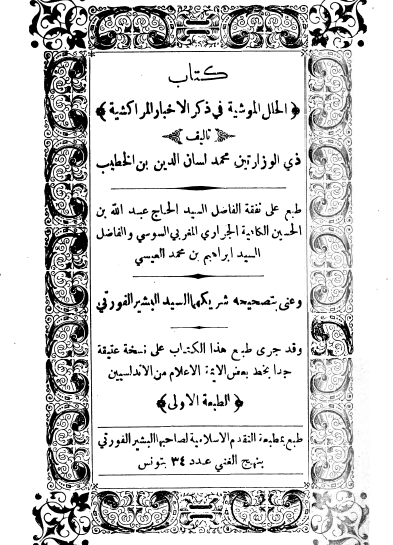 كتاب
﴿ الحلل الموشية في ذكر الاخبار المراكشية ﴾
تاليف
ذي الوزارتين محمد لسان الدين بن الخطيب
طبع على نفقة الفاضل السيد الحاج عبد الله بن
الحسين الكادية الجراري المغربي السوسي والفاضل
السيد ابراهيم بن محمد العيسي
وعنى بتصحيحه شريكهما السيد البشير الفورتي
وقد جرى طبع هذا الكتاب على نسخة عتيقة
جدا بخط بعض الايمة الاعلام من الاندلسيين
﴿ الطبعة الاولى ﴾
طبع بمطبعة التقدم الاسلامية لصاحبها البشير الفورتي
بنهج الغني عدد ٣٤ بتونس